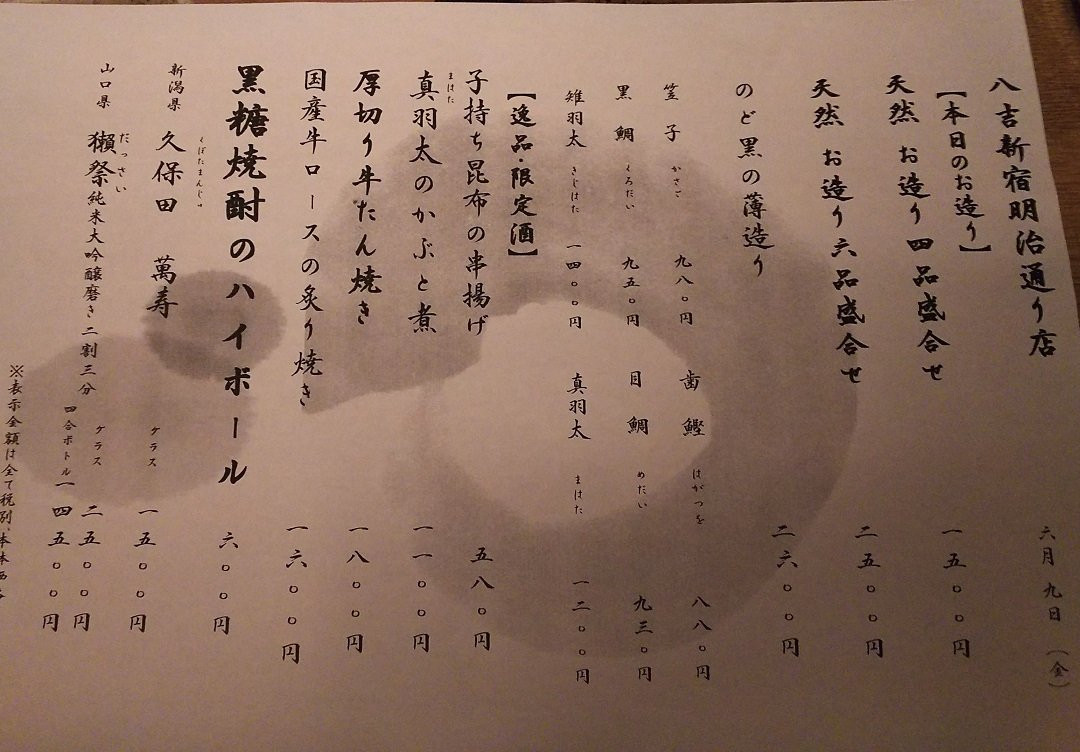 八吉新宿明治通り店
六月九日（金）
【本日のお造り】
天然 お造り四品盛合せ 一五〇〇円
天然 お造り六品盛合せ 二五〇〇円
のど黒の薄造り 二六〇〇円
笠子 かさご 九八〇円 歯鰹 はがつを 八八〇円
黒鯛 くろだい 九五〇円 目鯛 めだい 九三〇円
雉羽太 きじはた 一四〇〇円 真羽太 まはた 一二〇〇円
【逸品・限定酒】
子持ち昆布の串揚げ 五八〇円
真羽太のかぶと煮 一一〇〇円
まはた
厚切り牛たん焼き 一八〇〇円
国産牛ロースの炙り焼き 一六〇〇円
黒糖焼酎のハイボール 六〇〇円
新潟県 久保田 萬寿 グラス 一五〇〇円
くぼたまんじゅ
山口県 獺祭 純米大吟醸磨き二割三分 グラス 二五〇〇円
だっさい
四合ボトル 一四五〇〇円
※表示金額は全て税別